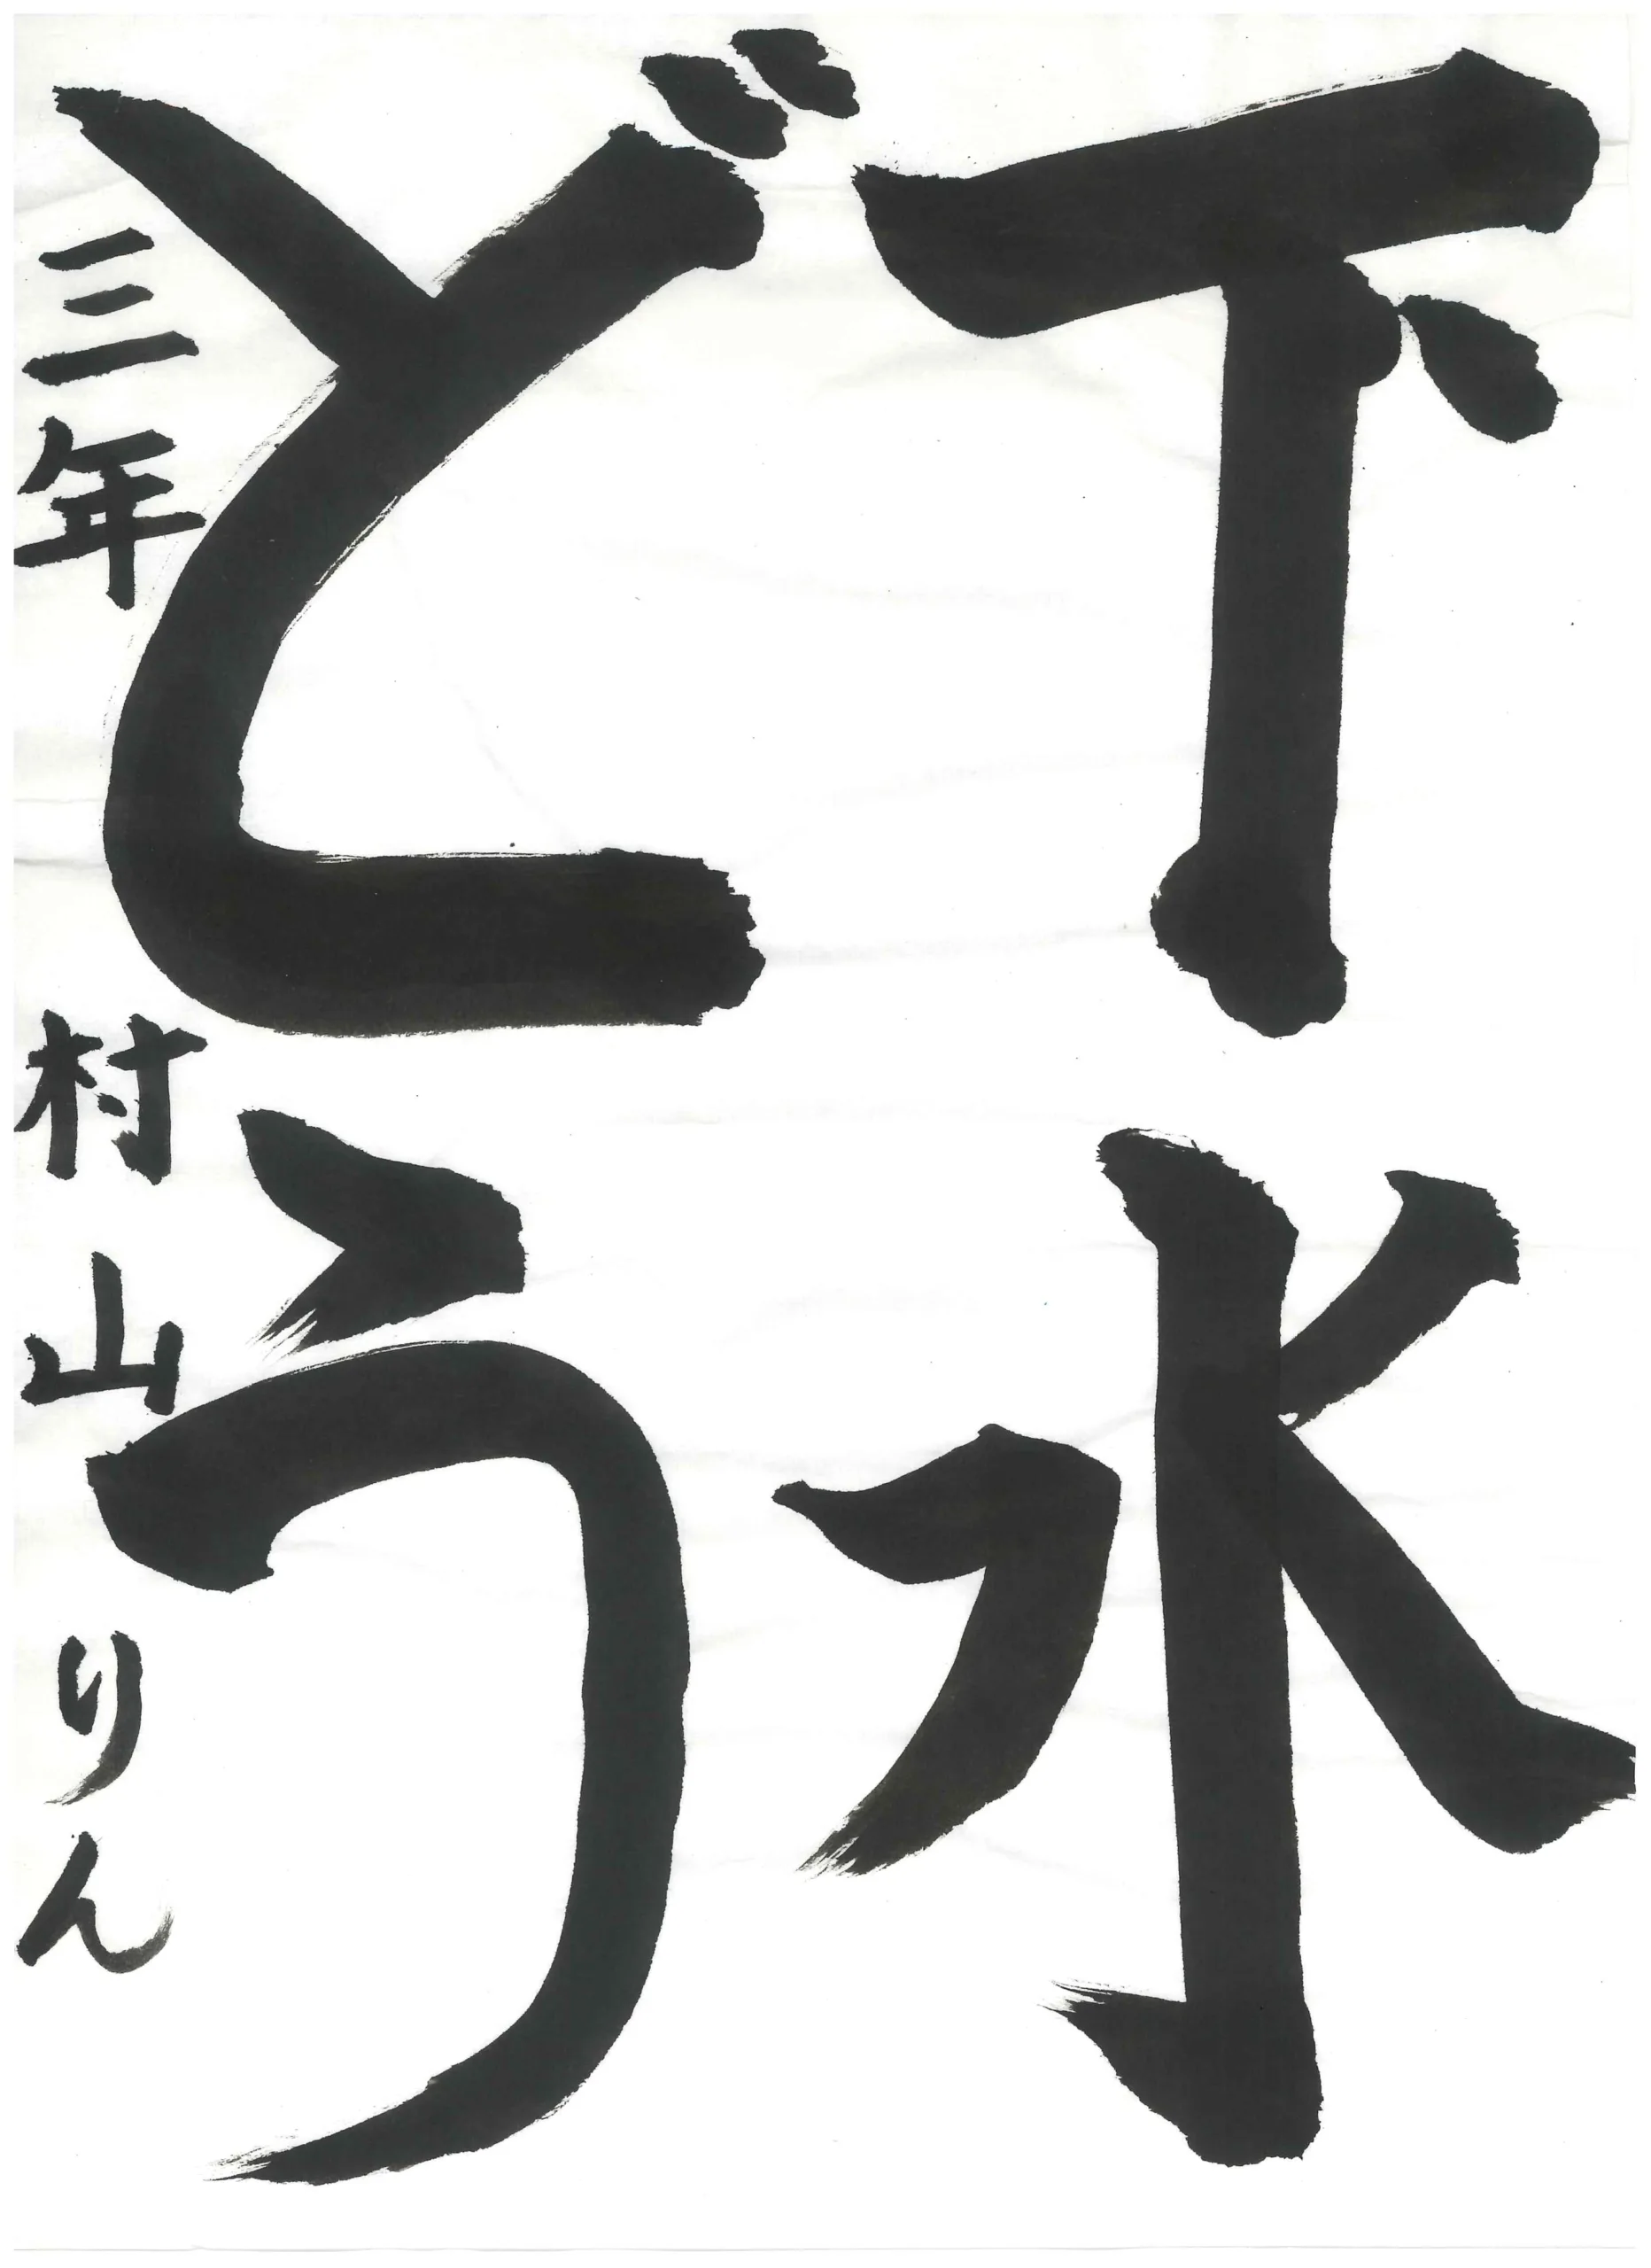 下水
どう
三年 村山りん